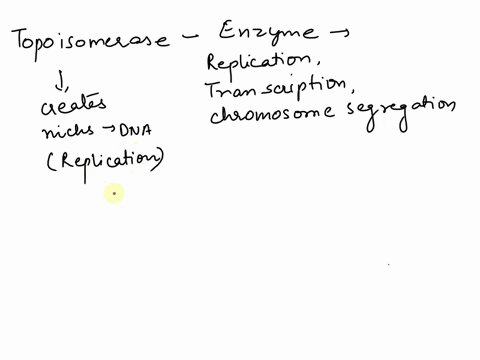 Topoisomerase - Enzyme →
Replication,
Transcription,
chromosome segregation
↓
creates
nicks → DNA
(Replication)